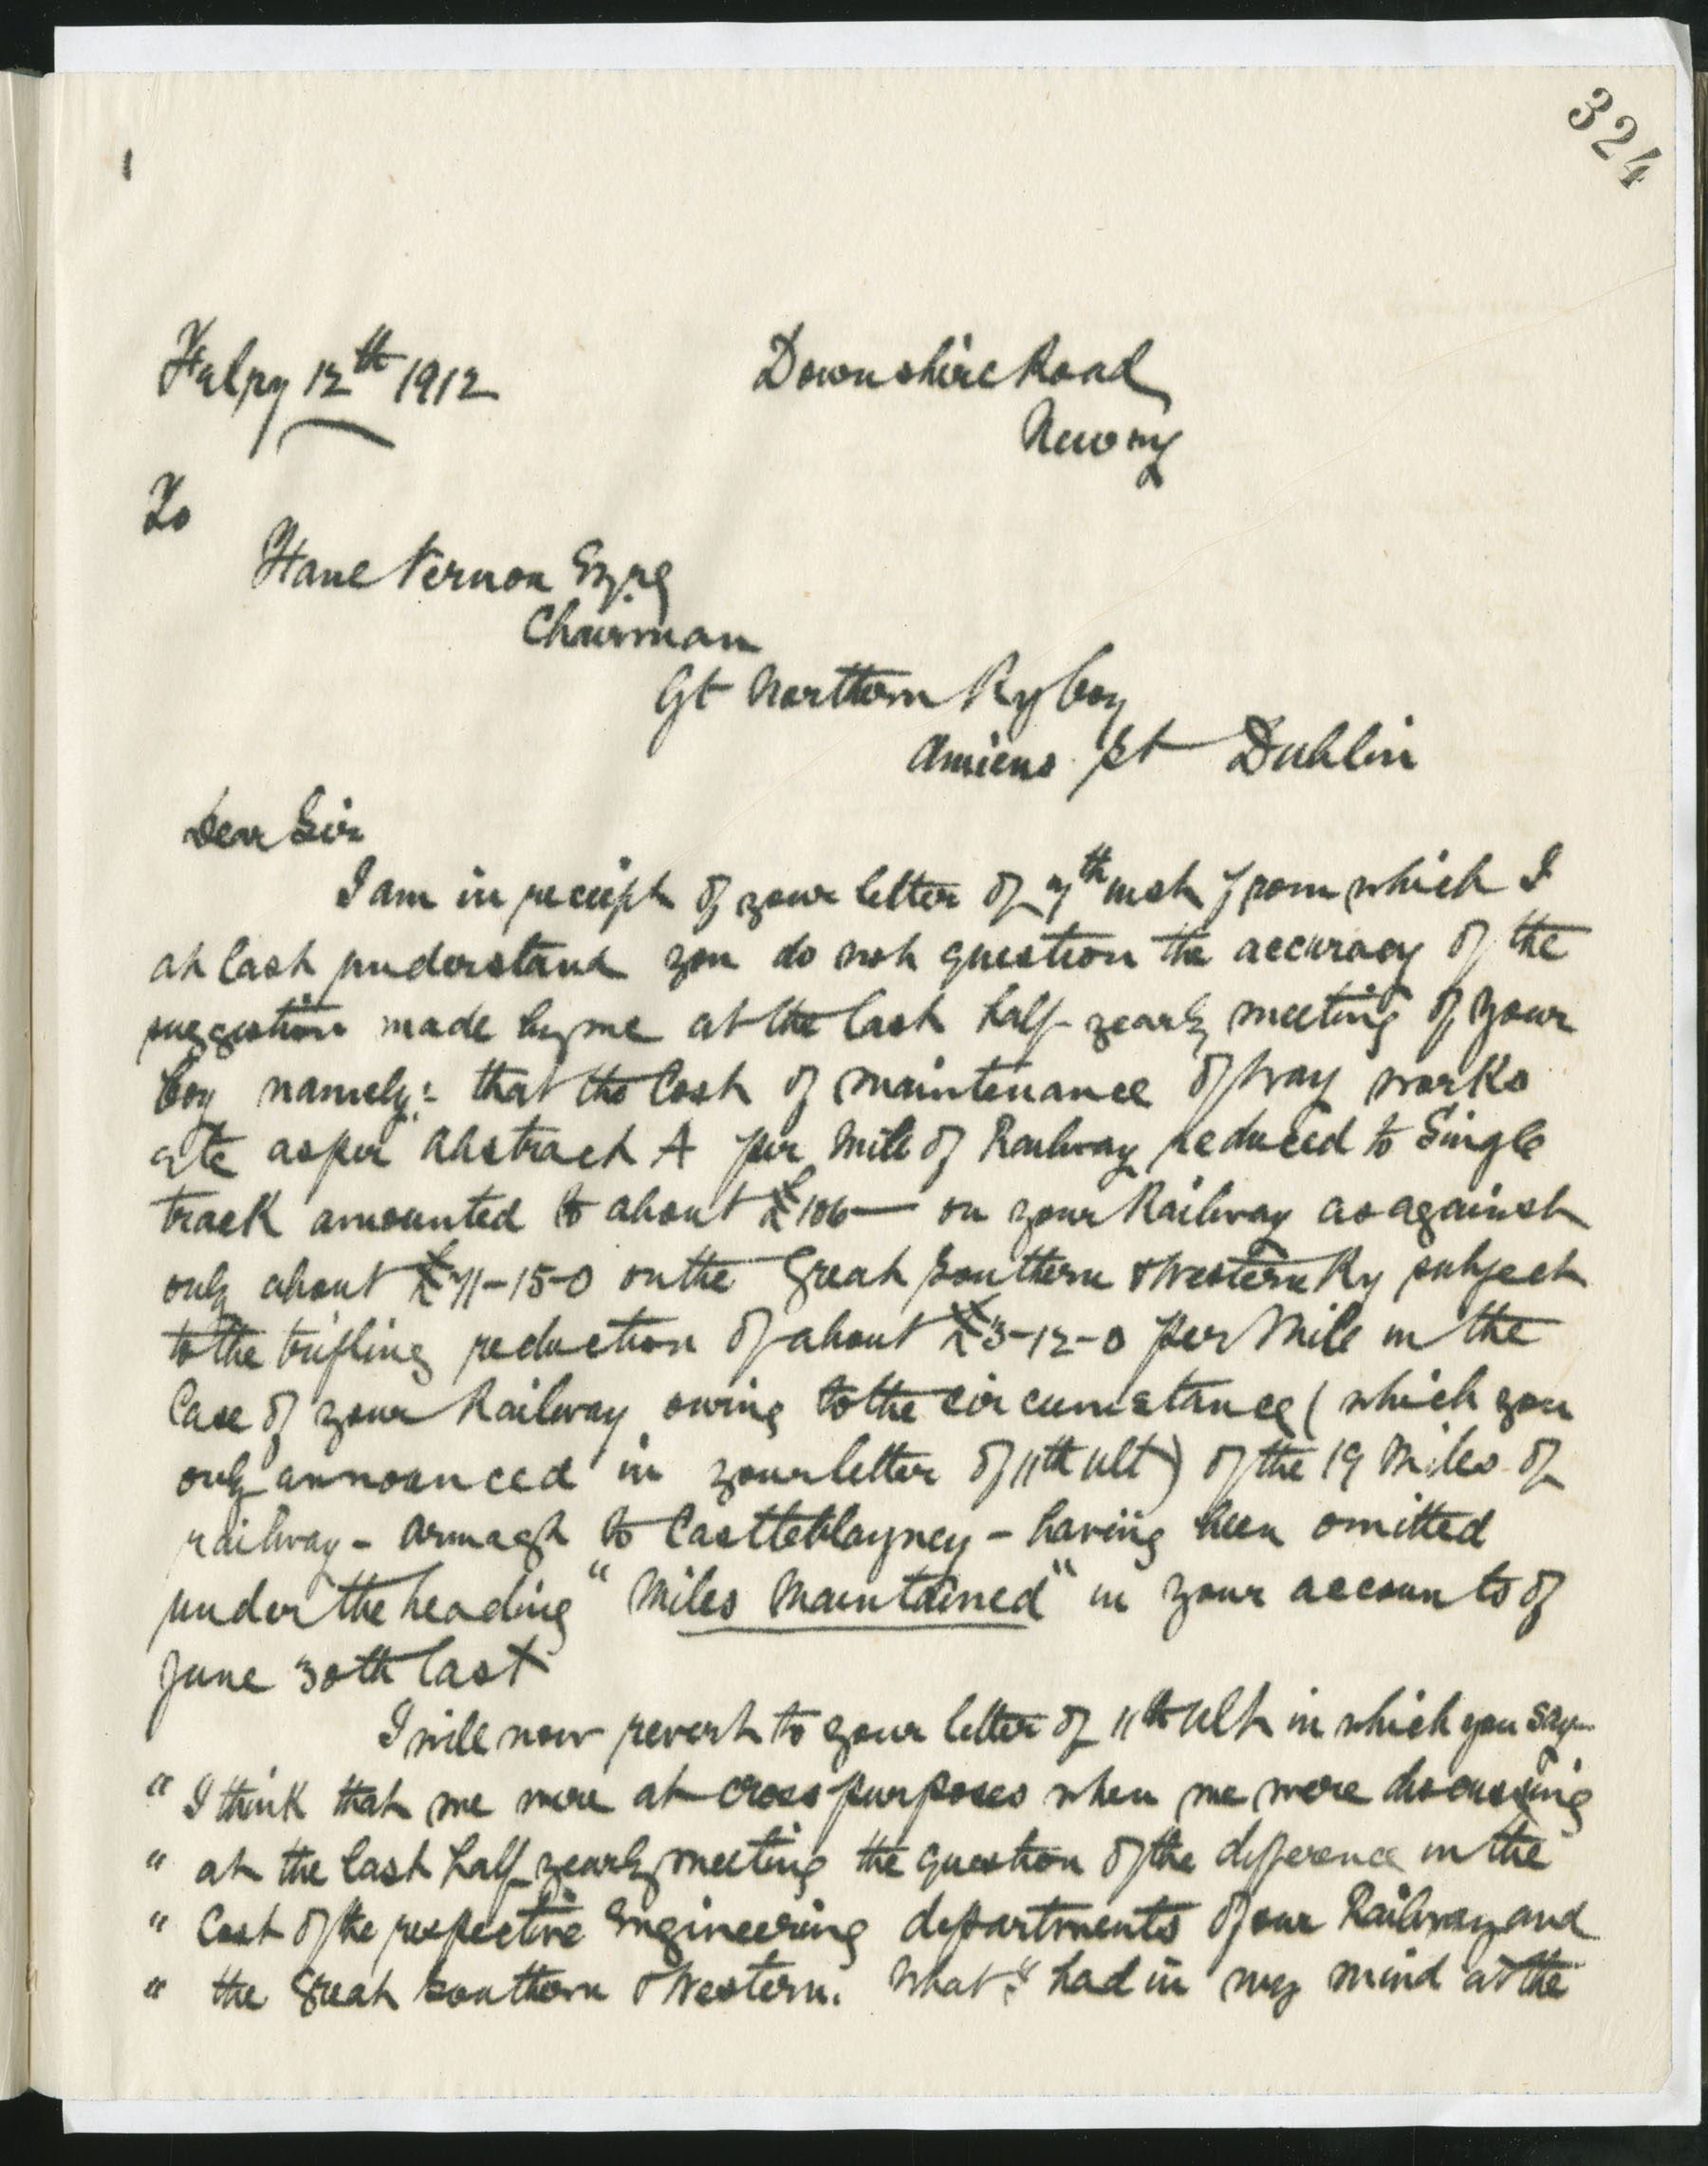 324
1
Feby 12th 1912
Downshire Road
Newry
To
Fane Vernon Esqre
Chairman
Gt Northern Ry Coy
Amiens St Dublin
Dear Sir
I am in receipt of your letter of 7th inst from which I
at last understand you do not question the accuracy of the
suggestion made by me at the last half yearly meeting of your
Coy namely: that the Cost of maintenance of Way works
etc as per Abstract A per Mile of Railway reduced to Single
track amounted to about £106— on your Railway as against
only about £71-15-0 on the Great Southern & Western Ry subject
to the trifling reduction of about £3-12-0 per Mile in the
Case of your Railway owing to the circumstance (which you
only announced in your letter of 11th ult) of the 19 Miles of
railway - Armagh to Castleblayney - having been omitted
under the heading "Miles Maintained" in your accounts of
June 30th last
I will now revert to your letter of 11th ult in which you say—
" I think that we were at cross purposes when we were discussing
" at the last half yearly meeting the question of the difference in the
" Cost of the respective Engineering departments of our Railway and
" the Great Southern & Western. What I had in my mind at the